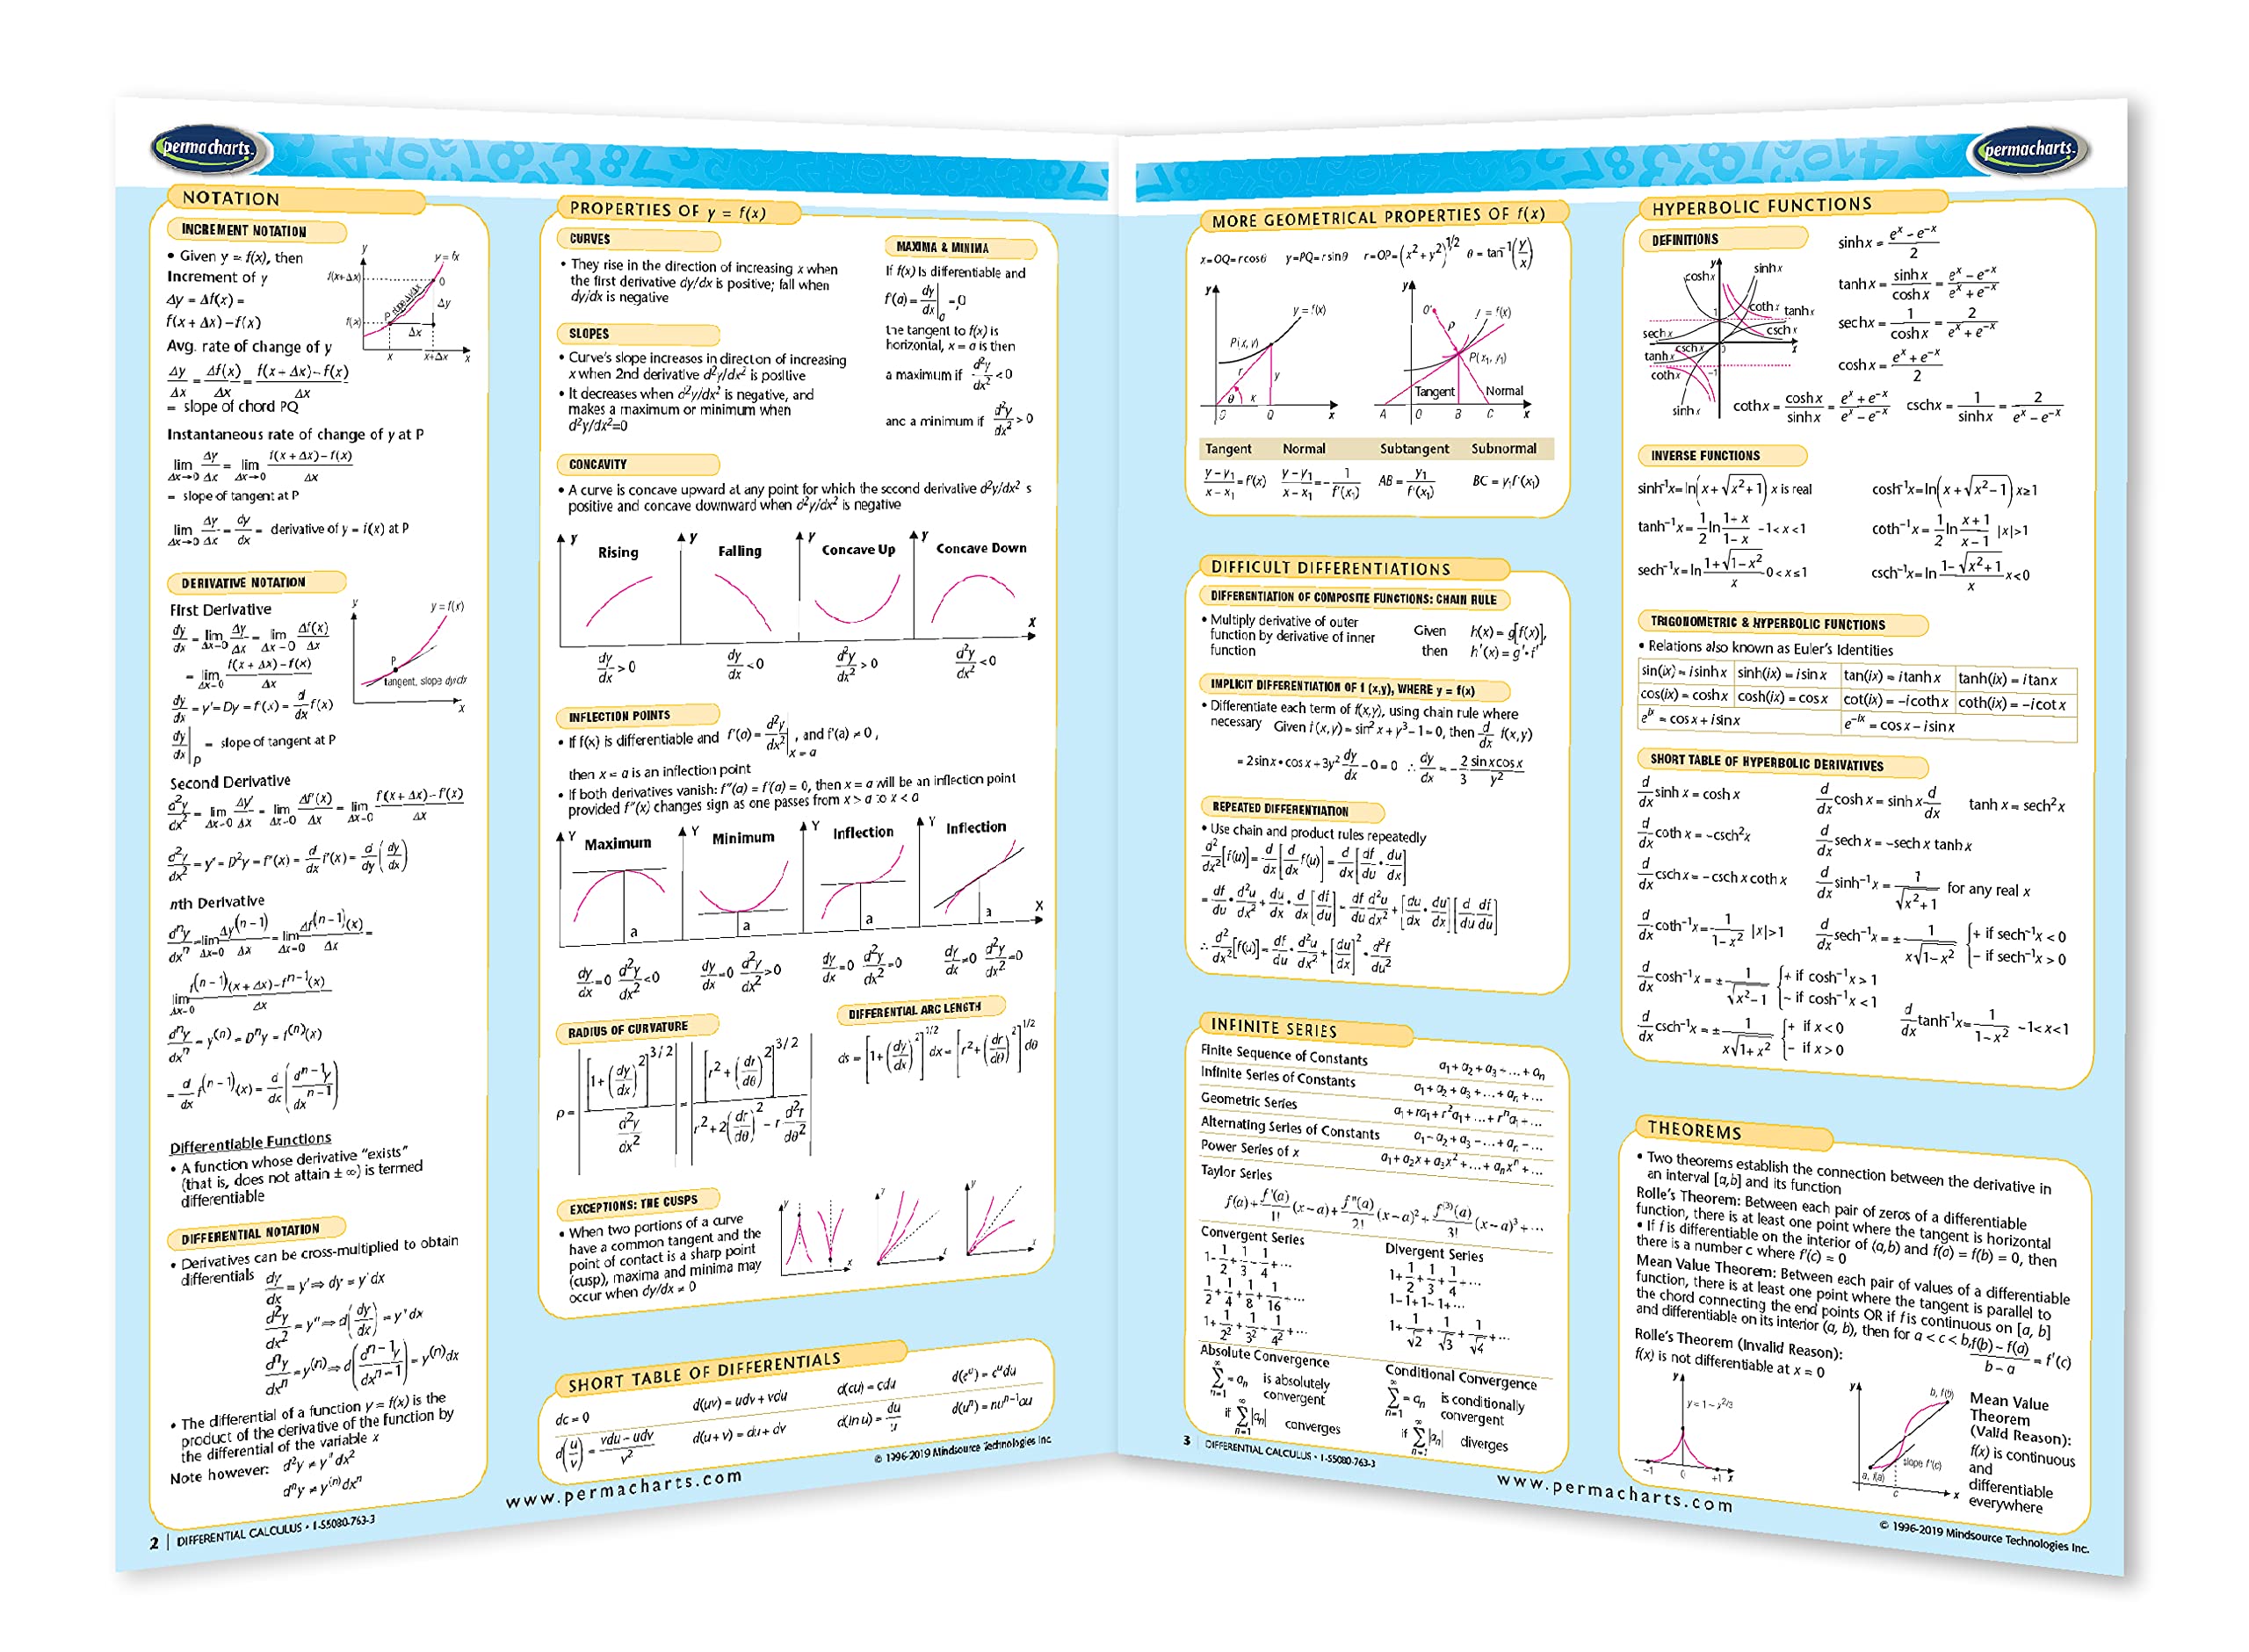 permacharts
NOTATION
INCREMENT NOTATION
• Given y = f(x), then
Increment of y
Δy = Δf(x) =
f(x + Δx) – f(x)
Avg. rate of change of y
Δy/Δx = Δf(x)/Δx = f(x + Δx) – f(x)/Δx
= slope of chord PQ
Instantaneous rate of change of y at P
lim Δx→0 Δy/Δx = lim Δx→0 f(x + Δx) – f(x)/Δx
= slope of tangent at P
lim Δx→0 Δy/Δx = dy/dx = derivative of y = f(x) at P
DERIVATIVE NOTATION
First Derivative
y = f(x)
P
tangent, slope dy/dx
dy/dx = y' = Dy = f'(x) = d/dx f(x)
dy/dx|P = slope of tangent at P
Second Derivative
nth Derivative
Differentiable Functions
• A function whose derivative "exists"
(that is, does not attain ± ∞) is termed
differentiable
DIFFERENTIAL NOTATION
• Derivatives can be cross-multiplied to obtain
differentials dy/dx = y' ⇒ dy = y'dx
• The differential of a function y = f(x) is the
product of the derivative of the function by
the differential of the variable x
Note however: d²y ≠ y"dx²
dⁿy ≠ y⁽ⁿ⁾dxⁿ
2 | DIFFERENTIAL CALCULUS • 1-55080-763-3
PROPERTIES OF y = f(x)
CURVES
• They rise in the direction of increasing x when
the first derivative dy/dx is positive; fall when
dy/dx is negative
SLOPES
• Curve's slope increases in direction of increasing
x when 2nd derivative d²y/dx² is positive
• It decreases when d²y/dx² is negative, and
makes a maximum or minimum when
d²y/dx²=0
MAXIMA & MINIMA
If f(x) is differentiable and
f'(a) = dy/dx|a = 0
the tangent to f(x) is
horizontal, x = a is then
a maximum if d²y/dx² < 0
and a minimum if d²y/dx² > 0
CONCAVITY
• A curve is concave upward at any point for which the second derivative d²y/dx² s
positive and concave downward when d²y/dx² is negative
Rising Falling Concave Up Concave Down
dy/dx > 0 dy/dx < 0 d²y/dx² > 0 d²y/dx² < 0
INFLECTION POINTS
• If f(x) is differentiable and f'(a) = d²y/dx²|x = a, and f'(a) ≠ 0,
then x = a is an inflection point
• If both derivatives vanish: f"(a) = f'(a) = 0, then x = a will be an inflection point
provided f"(x) changes sign as one passes from x > a to x < a
Maximum Minimum Inflection Inflection
dy/dx=0 d²y/dx²<0 dy/dx=0 d²y/dx²>0 dy/dx=0 d²y/dx²=0 dy/dx≠0 d²y/dx²=0
RADIUS OF CURVATURE
DIFFERENTIAL ARC LENGTH
ds = [1+(dy/dx)²]^1/2 dx = [r²+(dr/dθ)²]^1/2 dθ
EXCEPTIONS: THE CUSPS
• When two portions of a curve
have a common tangent and the
point of contact is a sharp point
(cusp), maxima and minima may
occur when dy/dx ≠ 0
SHORT TABLE OF DIFFERENTIALS
dc = 0 d(uv) = udv + vdu d(cu) = cdu d(eᵘ) = eᵘdu
d(u/v) = vdu – udv/v² d(u + v) = du + dv d(ln u) = du/u d(uⁿ) = nuⁿ⁻¹du
© 1996-2019 Mindsource Technologies Inc.
www.permacharts.com
permacharts
MORE GEOMETRICAL PROPERTIES OF f(x)
x=OQ=rcosθ y=PQ=rsinθ r=OP=(x²+y²)^1/2 θ = tan⁻¹(y/x)
y = f(x)
P(x, y)
P(x₁, y₁)
Tangent Normal
Tangent Normal Subtangent Subnormal
y – y₁/x – x₁ = f'(x) y – y₁/x – x₁ = –1/f'(x₁) AB = y₁/f'(x₁) BC = y₁f'(x₁)
DIFFICULT DIFFERENTIATIONS
DIFFERENTIATION OF COMPOSITE FUNCTIONS: CHAIN RULE
• Multiply derivative of outer
function by derivative of inner
function
Given h(x) = g[f(x)],
then h'(x) = g'•f'
IMPLICIT DIFFERENTIATION OF f (x,y), WHERE y = f(x)
• Differentiate each term of f(x,y), using chain rule where
necessary Given f(x,y) = sin² x + y³ – 1 = 0, then d/dx f(x,y)
= 2sinx•cosx + 3y² dy/dx – 0 = 0 ∴ dy/dx = –2/3 sinxcosx/y²
REPEATED DIFFERENTIATION
• Use chain and product rules repeatedly
∴ d²/dx²[f(u)] = df/du • d²u/dx² + [du/dx]² • d²f/du²
INFINITE SERIES
Finite Sequence of Constants a₁ + a₂ + a₃ + ... + aₙ
Infinite Series of Constants a₁ + a₂ + a₃ + ... + aₙ + ...
Geometric Series a₁ + ra₁ + r²a₁ + ... + rⁿa₁ + ...
Alternating Series of Constants a₁ – a₂ + a₃ – ... + aₙ – ...
Power Series of x a₁ + a₂x + a₃x² + ... + aₙxⁿ + ...
Taylor Series
f(a) + f'(a)/1! (x – a) + f"(a)/2! (x – a)² + f⁽³⁾(a)/3! (x – a)³ + ...
Convergent Series Divergent Series
1 – 1/2 + 1/3 – 1/4 + ... 1 + 1/2 + 1/3 + 1/4 + ...
1/2 + 1/4 + 1/8 + 1/16 + ... 1 – 1 + 1 – 1 + ...
1 + 1/2² + 1/3² + 1/4² + ... 1 + 1/√2 + 1/√3 + 1/√4 + ...
Absolute Convergence Conditional Convergence
∑ = aₙ is absolutely convergent ∑ = aₙ is conditionally convergent
if ∑|aₙ| converges if ∑|aₙ| diverges
3 | DIFFERENTIAL CALCULUS • 1-55080-763-3
HYPERBOLIC FUNCTIONS
DEFINITIONS
sinhx = eˣ – e⁻ˣ/2
tanhx = sinhx/coshx = eˣ – e⁻ˣ/eˣ + e⁻ˣ
sechx = 1/coshx = 2/eˣ + e⁻ˣ
coshx = eˣ + e⁻ˣ/2
cothx = coshx/sinhx = eˣ + e⁻ˣ/eˣ – e⁻ˣ cschx = 1/sinhx = 2/eˣ – e⁻ˣ
INVERSE FUNCTIONS
sinh⁻¹x = ln(x + √x²+1) x is real cosh⁻¹x = ln(x + √x²–1) x≥1
tanh⁻¹x = 1/2 ln 1+x/1–x –1<x<1 coth⁻¹x = 1/2 ln x+1/x–1 |x|>1
sech⁻¹x = ln 1+√1–x²/x 0<x≤1 csch⁻¹x = ln 1–√x²+1/x x<0
TRIGONOMETRIC & HYPERBOLIC FUNCTIONS
• Relations also known as Euler's Identities
sin(ix) = isinhx sinh(ix) = isinx tan(ix) = itanhx tanh(ix) = itanx
cos(ix) = coshx cosh(ix) = cosx cot(ix) = –icothx coth(ix) = –icotx
eⁱˣ = cosx + isinx e⁻ⁱˣ = cosx – isinx
SHORT TABLE OF HYPERBOLIC DERIVATIVES
d/dx sinh x = cosh x d/dx cosh x = sinh x d/dx tanh x = sech²x
d/dx coth x = –csch²x d/dx sech x = –sech x tanh x
d/dx csch x = –csch x coth x d/dx sinh⁻¹x = 1/√x²+1 for any real x
d/dx coth⁻¹x = 1/1–x² |x|>1 d/dx sech⁻¹x = ± 1/x√1–x² {+ if sech⁻¹x < 0 – if sech⁻¹x > 0
d/dx cosh⁻¹x = ± 1/√x²–1 {+ if cosh⁻¹x > 1 – if cosh⁻¹x < 1
d/dx csch⁻¹x = ± 1/x√1+x² {+ if x < 0 – if x > 0 d/dx tanh⁻¹x = 1/1–x² –1<x<1
THEOREMS
• Two theorems establish the connection between the derivative in
an interval [a,b] and its function
Rolle's Theorem: Between each pair of zeros of a differentiable
function, there is at least one point where the tangent is horizontal
• If f is differentiable on the interior of (a,b) and f(a) = f(b) = 0, then
there is a number c where f'(c) = 0
Mean Value Theorem: Between each pair of values of a differentiable
function, there is at least one point where the tangent is parallel to
the chord connecting the end points OR if f is continuous on [a, b]
and differentiable on its interior (a, b), then for a < c < b, f(b) – f(a)/b – a = f'(c)
Rolle's Theorem (Invalid Reason):
f(x) is not differentiable at x = 0
Mean Value
Theorem
(Valid Reason):
f(x) is continuous
and
differentiable
everywhere
www.permacharts.com
© 1996-2019 Mindsource Technologies Inc.